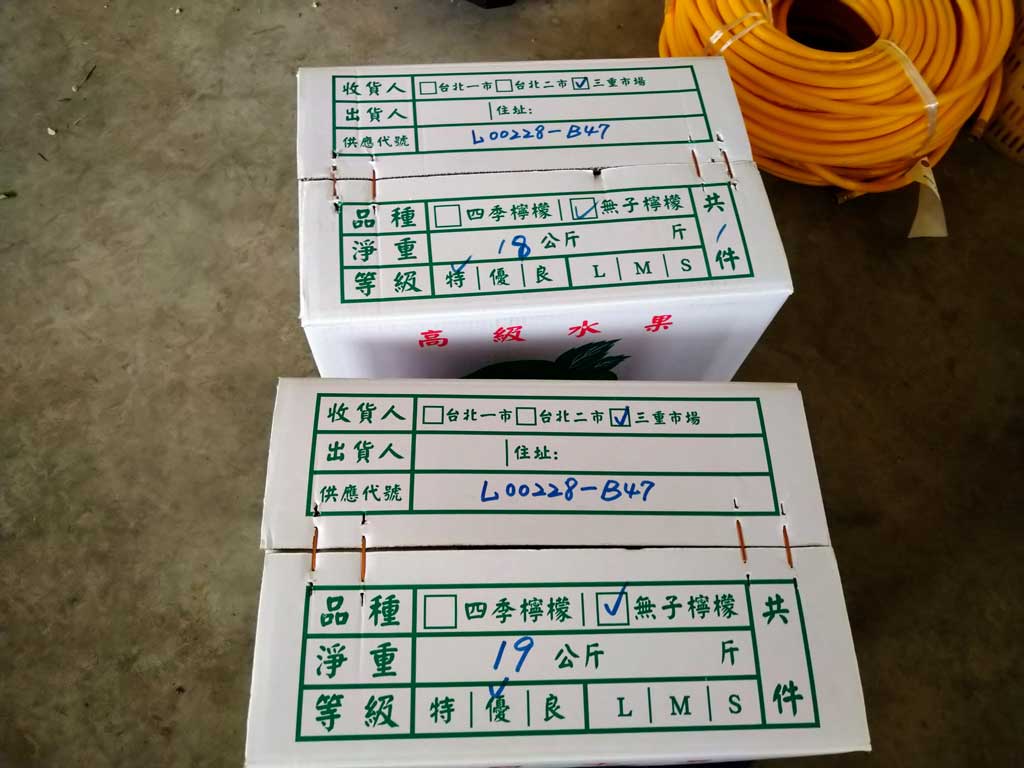 收貨人 □台北一市 □台北二市 ☑三重市場
出貨人 住址:
供應代號 L00228-B47
品種 □四季檸檬 ☑無子檸檬 共1件
淨重 18公斤 斤
等級 特✓ 優 良 L M S
高級水果
收貨人 □台北一市 □台北二市 ☑三重市場
出貨人 住址:
供應代號 L00228-B47
品種 □四季檸檬 ☑無子檸檬 共件
淨重 19公斤 斤
等級 特 優✓ 良 L M S